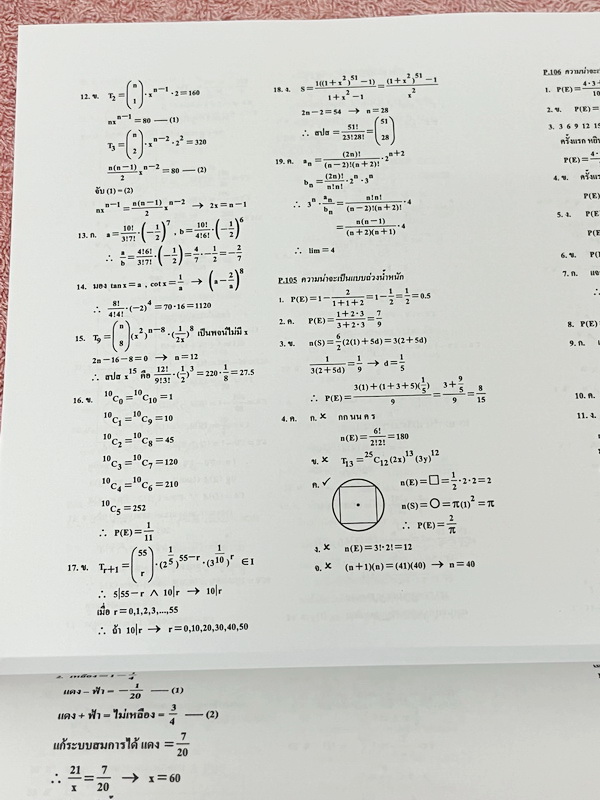 12. ข. T₂ = (n 1) · xⁿ⁻¹ · 2 = 160
nxⁿ⁻¹ = 80 —— (1)
T₃ = (n 2) · xⁿ⁻² · 2² = 320
n(n−1)/2 xⁿ⁻² = 80 —— (2)
จับ (1) = (2)
nxⁿ⁻¹ = n(n−1)/2 xⁿ⁻² → 2x = n−1
13. ก. a = 10!/3!7! · (−1/2)⁷ , b = 10!/4!6! · (−1/2)⁶
∴ a/b = 4!6!/3!7! · (−1/2) = 4/7 · −1/2 = −2/7
14. มอง tan x = a , cot x = 1/a → (a − 2/a)⁸
∴ 8!/4!4! · (−2)⁴ = 70·16 = 1120
15. T₉ = (n 8) (x²)ⁿ⁻⁸ · (1/2x)⁸ เป็นพจน์ไม่มี x
2n−16−8 = 0 → n = 12
∴ สปส x¹⁵ คือ 12!/9!3! · (1/2)³ = 220 · 1/8 = 27.5
16. ข. ¹⁰C₀ = ¹⁰C₁₀ = 1
¹⁰C₁ = ¹⁰C₉ = 10
¹⁰C₂ = ¹⁰C₈ = 45
¹⁰C₃ = ¹⁰C₇ = 120
¹⁰C₄ = ¹⁰C₆ = 210
¹⁰C₅ = 252
∴ P(E) = 1/11
17. ข. Tr+1 = (55 r) · (2^(1/5))^(55−r) · (3^(1/10))^r ∈ I
∴ 5|55−r ∧ 10|r → 10|r
เมื่อ r = 0,1,2,3,...,55
∴ ถ้า 10|r → r = 0,10,20,30,40,50
18. ง. S = 1((1+x²)⁵¹ −1)/1+x²−1 = (1+x²)⁵¹ −1/x²
2n−2 = 54 → n = 28
∴ สปส = 51!/23!28! = (51 28)
19. ค. aₙ = (2n)!/(n−2)!(n+2)! · 2ⁿ⁺²
bₙ = (2n)!/n!n! · 2ⁿ · 3ⁿ
∴ 3ⁿ · aₙ/bₙ = n!n!/(n−2)!(n+2)! · 4
= n(n−1)/(n+2)(n+1) · 4
∴ lim = 4
P.105 ความน่าจะเป็นแบบถ่วงน้ำหนัก
1. P(E) = 1 − 2/1+1+2 = 1 − 1/2 = 1/2 = 0.5
2. ค. P(E) = 1+2·3/3+2·3 = 7/9
3. ข. n(S) = 6/2 (2(1)+5d) = 3(2+5d)
1/3(2+5d) = 1/9 → d = 1/5
∴ P(E) = 3(1)+(1+3+5)(1/5)/9 = 3+9/5/9 = 8/15
4. ค. ก. × กก นน ค ร
n(E) = 6!/2!2! = 180
ข. × T₁₃ = ²⁵C₁₂ (2x)¹³ (3y)¹²
ค. ✓ n(E) = □ = 1/2 · 2 · 2 = 2
n(S) = ○ = π(1)² = π
∴ P(E) = 2/π
ง. × n(E) = 3!·2! = 12
จ. × (n+1)(n) = (41)(40) → n = 40
P.106 ความน่าจะเ
1. P(E) =
2. ข. P(E) =
3. 3 6 9 12 15
ครั้งแรก หยิ
P(E) =
4. ข. ครั้งแ
P(E)
5. ง. P(E)
P(E
6. ข. P(
7. ก. แจ
8. P(E)
9. ก.
10. ค.
11. ง.
แดง − ฟ้า = −1/20 —— (1)
แดง + ฟ้า = ไม่เหลือง = 3/4 —— (2)
แก้ระบบสมการได้ แดง = 7/20
∴ 21/x = 7/20 → x = 60